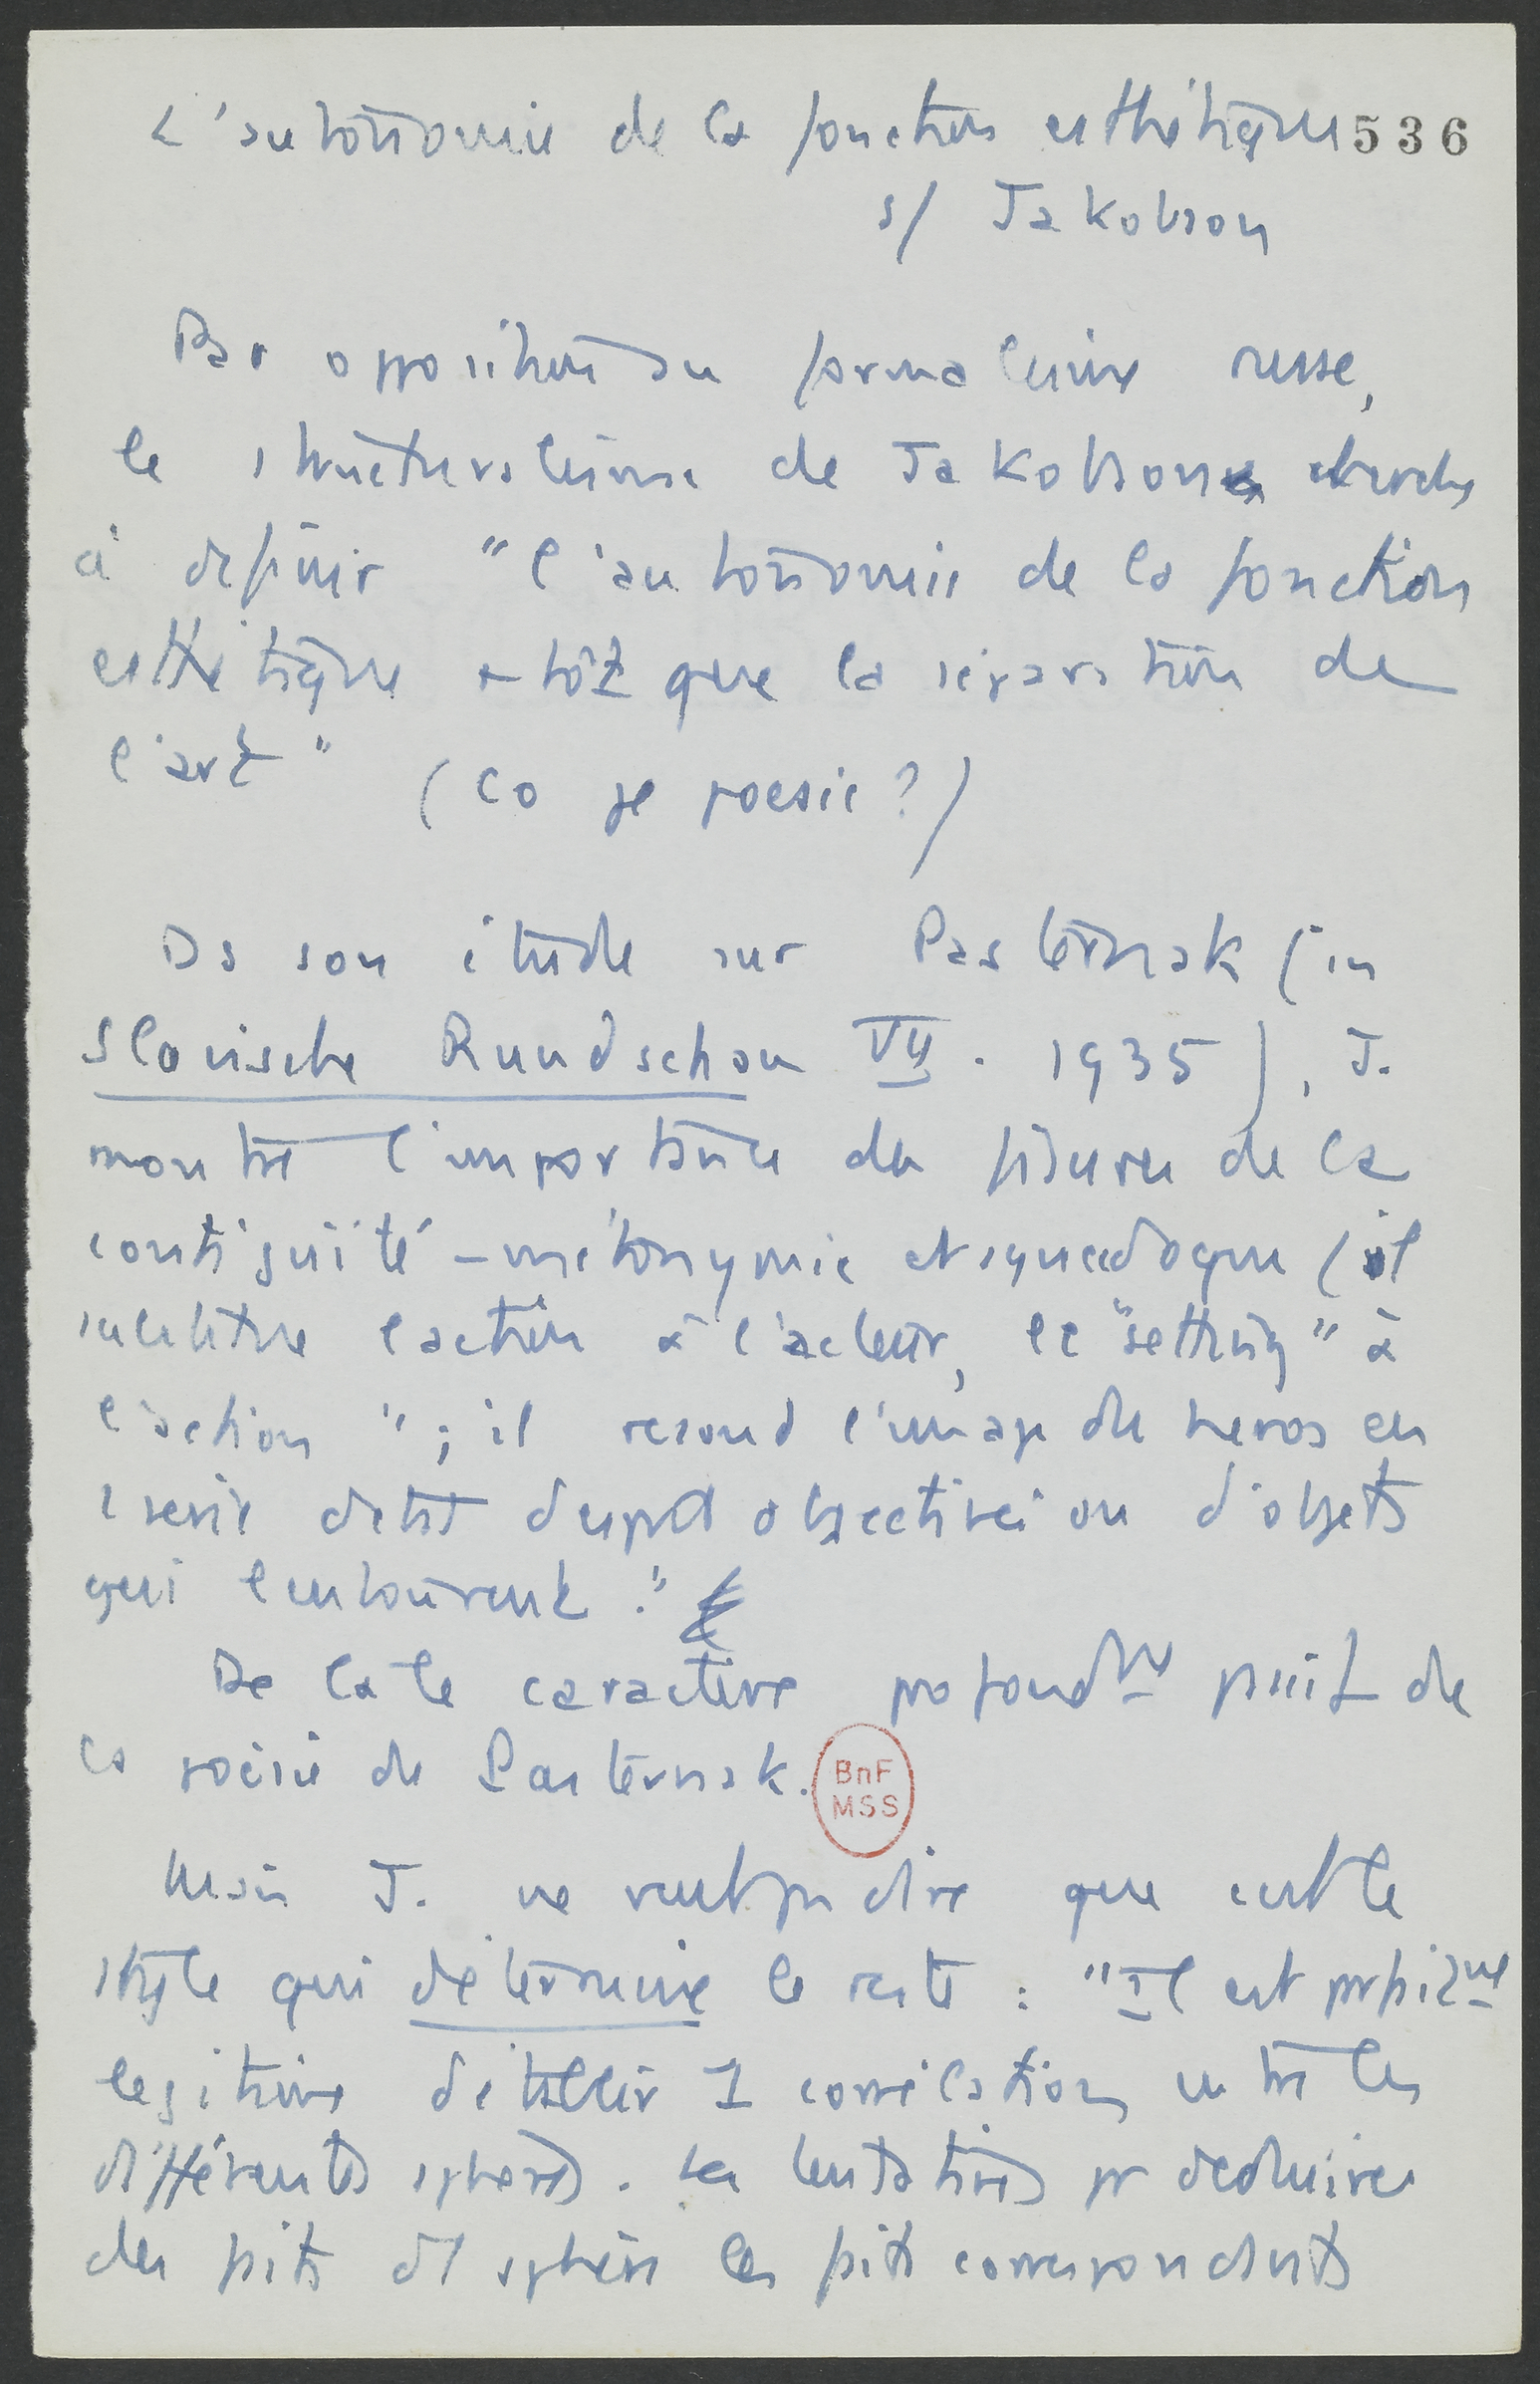 L'autonomie de la fonction esthétique 536
s/ Jakobson
Par opposition au formalisme russe,
le structuralisme de Jakobson cherche
à définir "l'autonomie de la fonction
esthétique +tôt que la séparation de
l'art" (Co je poesie?)
Ds son étude sur Pasternak (in
Slavische Rundschau VII. 1935), J.
montre l'importance des figures de la
contiguïté - métonymie et synecdoque (il
substitue l'action à l'acteur, le "setting" à
l'action"; il résoud l'image du héros en
1 série d'objectivés ou d'objets
qui l'entourent."
De là le caractère profondmt de
la poésie de Pasternak.
BnF
MSS
Mais J. ne veut pas dire que c'est le
style qui détermine le reste : "Il est
légitime d'établir 1 corrélation entre les
différentes sphères. Les tentatives pr déduire
des faits d'1 sphère les faits correspondants